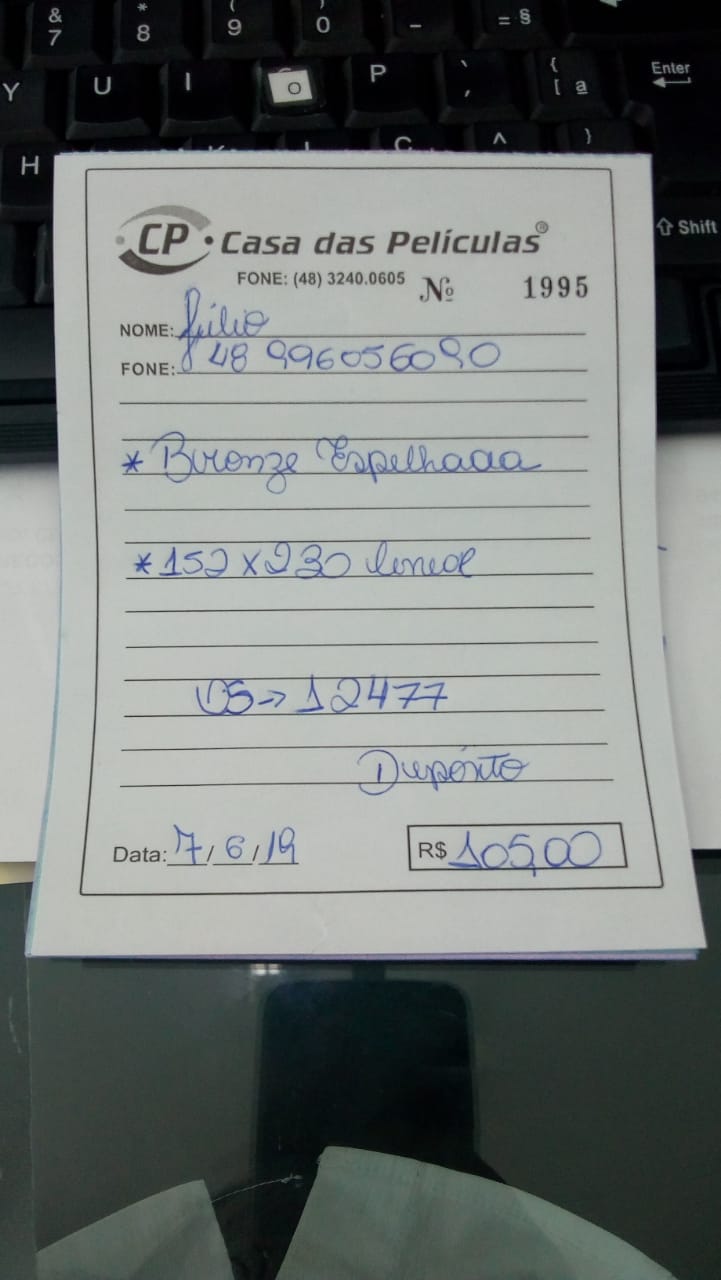 & * ( ) – = §
7 8 9 0
Y U I O P ` , { [ ª Enter
H Ç ^ }
Shift
CP Casa das Películas®
FONE: (48) 3240.0605 Nº 1995
NOME: Júlio
FONE: 48 996056090
* Bronze Espelhada
* 152 x 230 linear
OS → 12477
Depósito
Data: 7/6/19 R$ 105,00